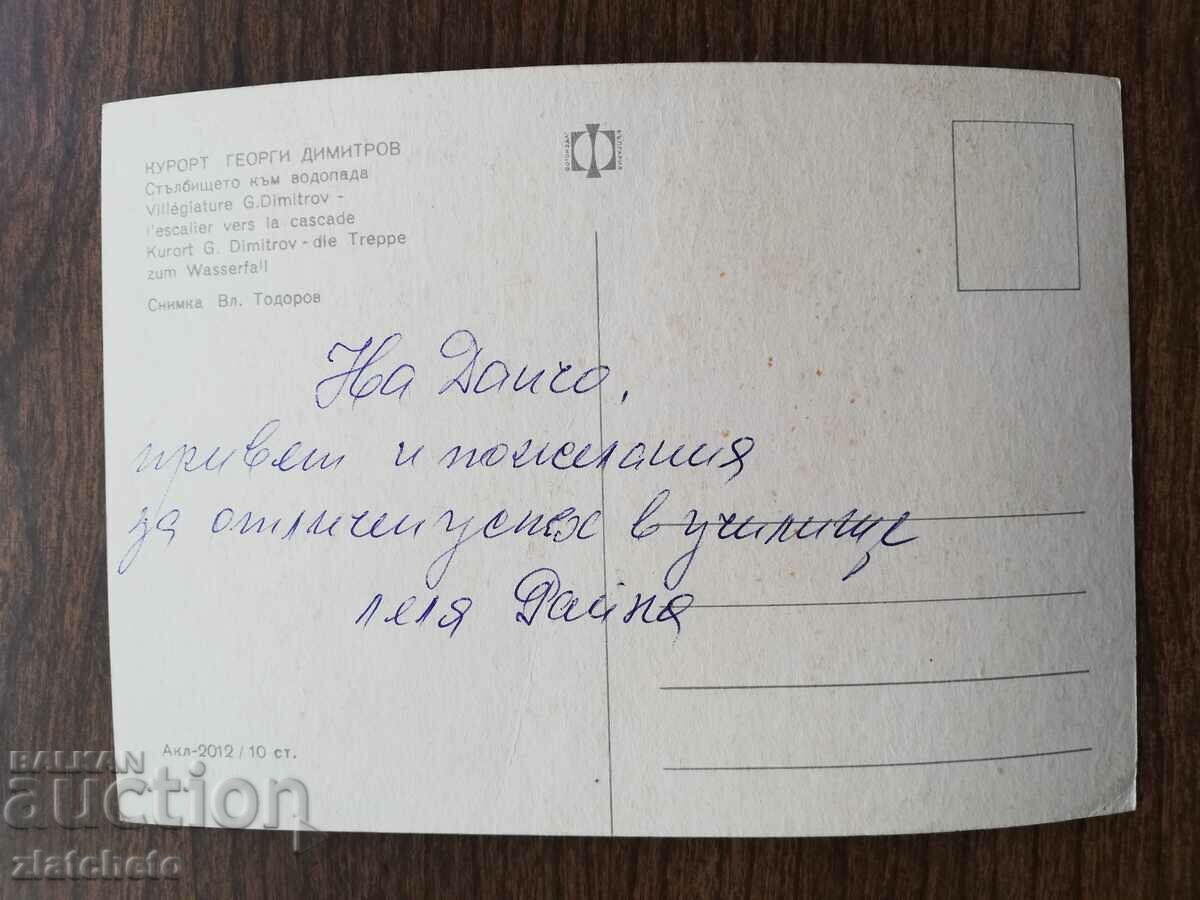 КУРОРТ ГЕОРГИ ДИМИТРОВ
Стълбището към водопада
Villégiature G.Dimitrov -
l'escalier vers la cascade
Kurort G. Dimitrov - die Treppe
zum Wasserfall
Снимка Вл. Тодоров
На Данчо,
привет и пожелания
за отличен успех в училище
леля Райна
Акл-2012 / 10 ст.
BALKAN
auction
zlatcheto